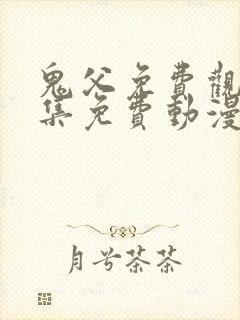 鬼父免費觀
集免費動漫
月兮茶茶